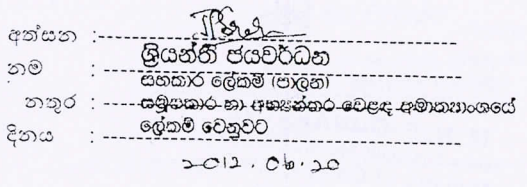 අත්සන :
නම : ශ්‍රියන්ති ජයවර්ධන
සහකාර ලේකම් (පාලන)
තතුර : සමුපකාර හා අභ්‍යන්තර වෙළඳ අමාත්‍යාංශයේ
දිනය : ලේකම් වෙනුවට
2012.06.20